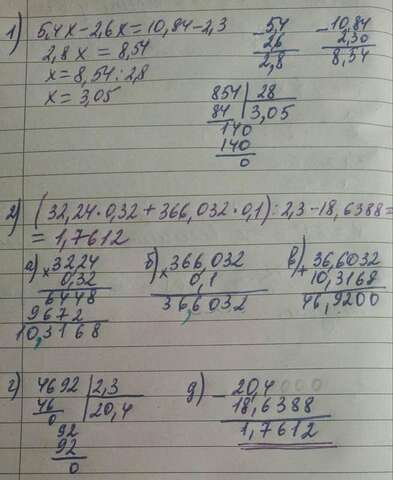 1) 5,4x-2,6x=10,84-2,3
2,8x = 8,54
x = 8,54:2,8
x = 3,05
- 5,4
2,6
2,8
- 10,84
2,30
8,54
854 | 28
84 | 3,05
140
140
0
2) (32,24·0,32+366,032·0,1):2,3-18,6388=
= 1,7612
а) x 32,24
0,32
6448
9672
10,3168
б) x 366,032
0,1
36,6032
в) + 36,6032
10,3168
46,9200
г) 4692 | 2,3
46 | 20,4
0
92
92
0
д) - 20,4000
18,6388
1,7612